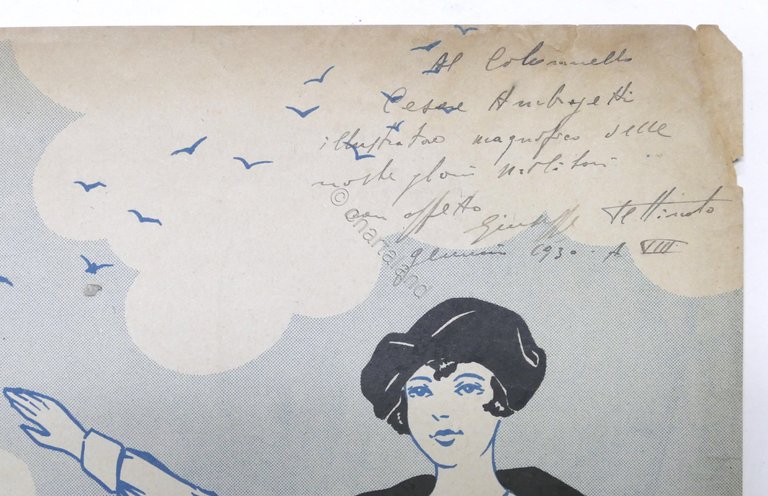 Al Colonnello
Cesare Ambrogetti
illustratore magnifico delle
nostre glorie militari
con affetto
Giuseppe
gennaio 1930 - A VIII
© chartaland